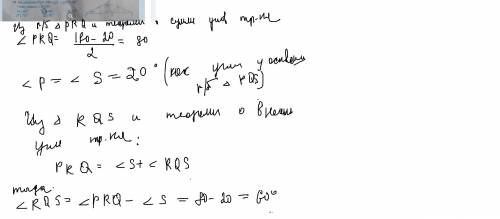 Из р/б Δ PRQ и теоремы о сумме углов тр-ка
∠ PRQ = 180-20/2 = 80
∠P = ∠ S = 20° (как углы у основан
р/б Δ PQS)
Из Δ RQS и теоремы о внешн
угле тр-ка:
PRQ = ∠S + ∠ RQS
тогда:
∠RQS = ∠PRQ - ∠S = 80-20 = 60°